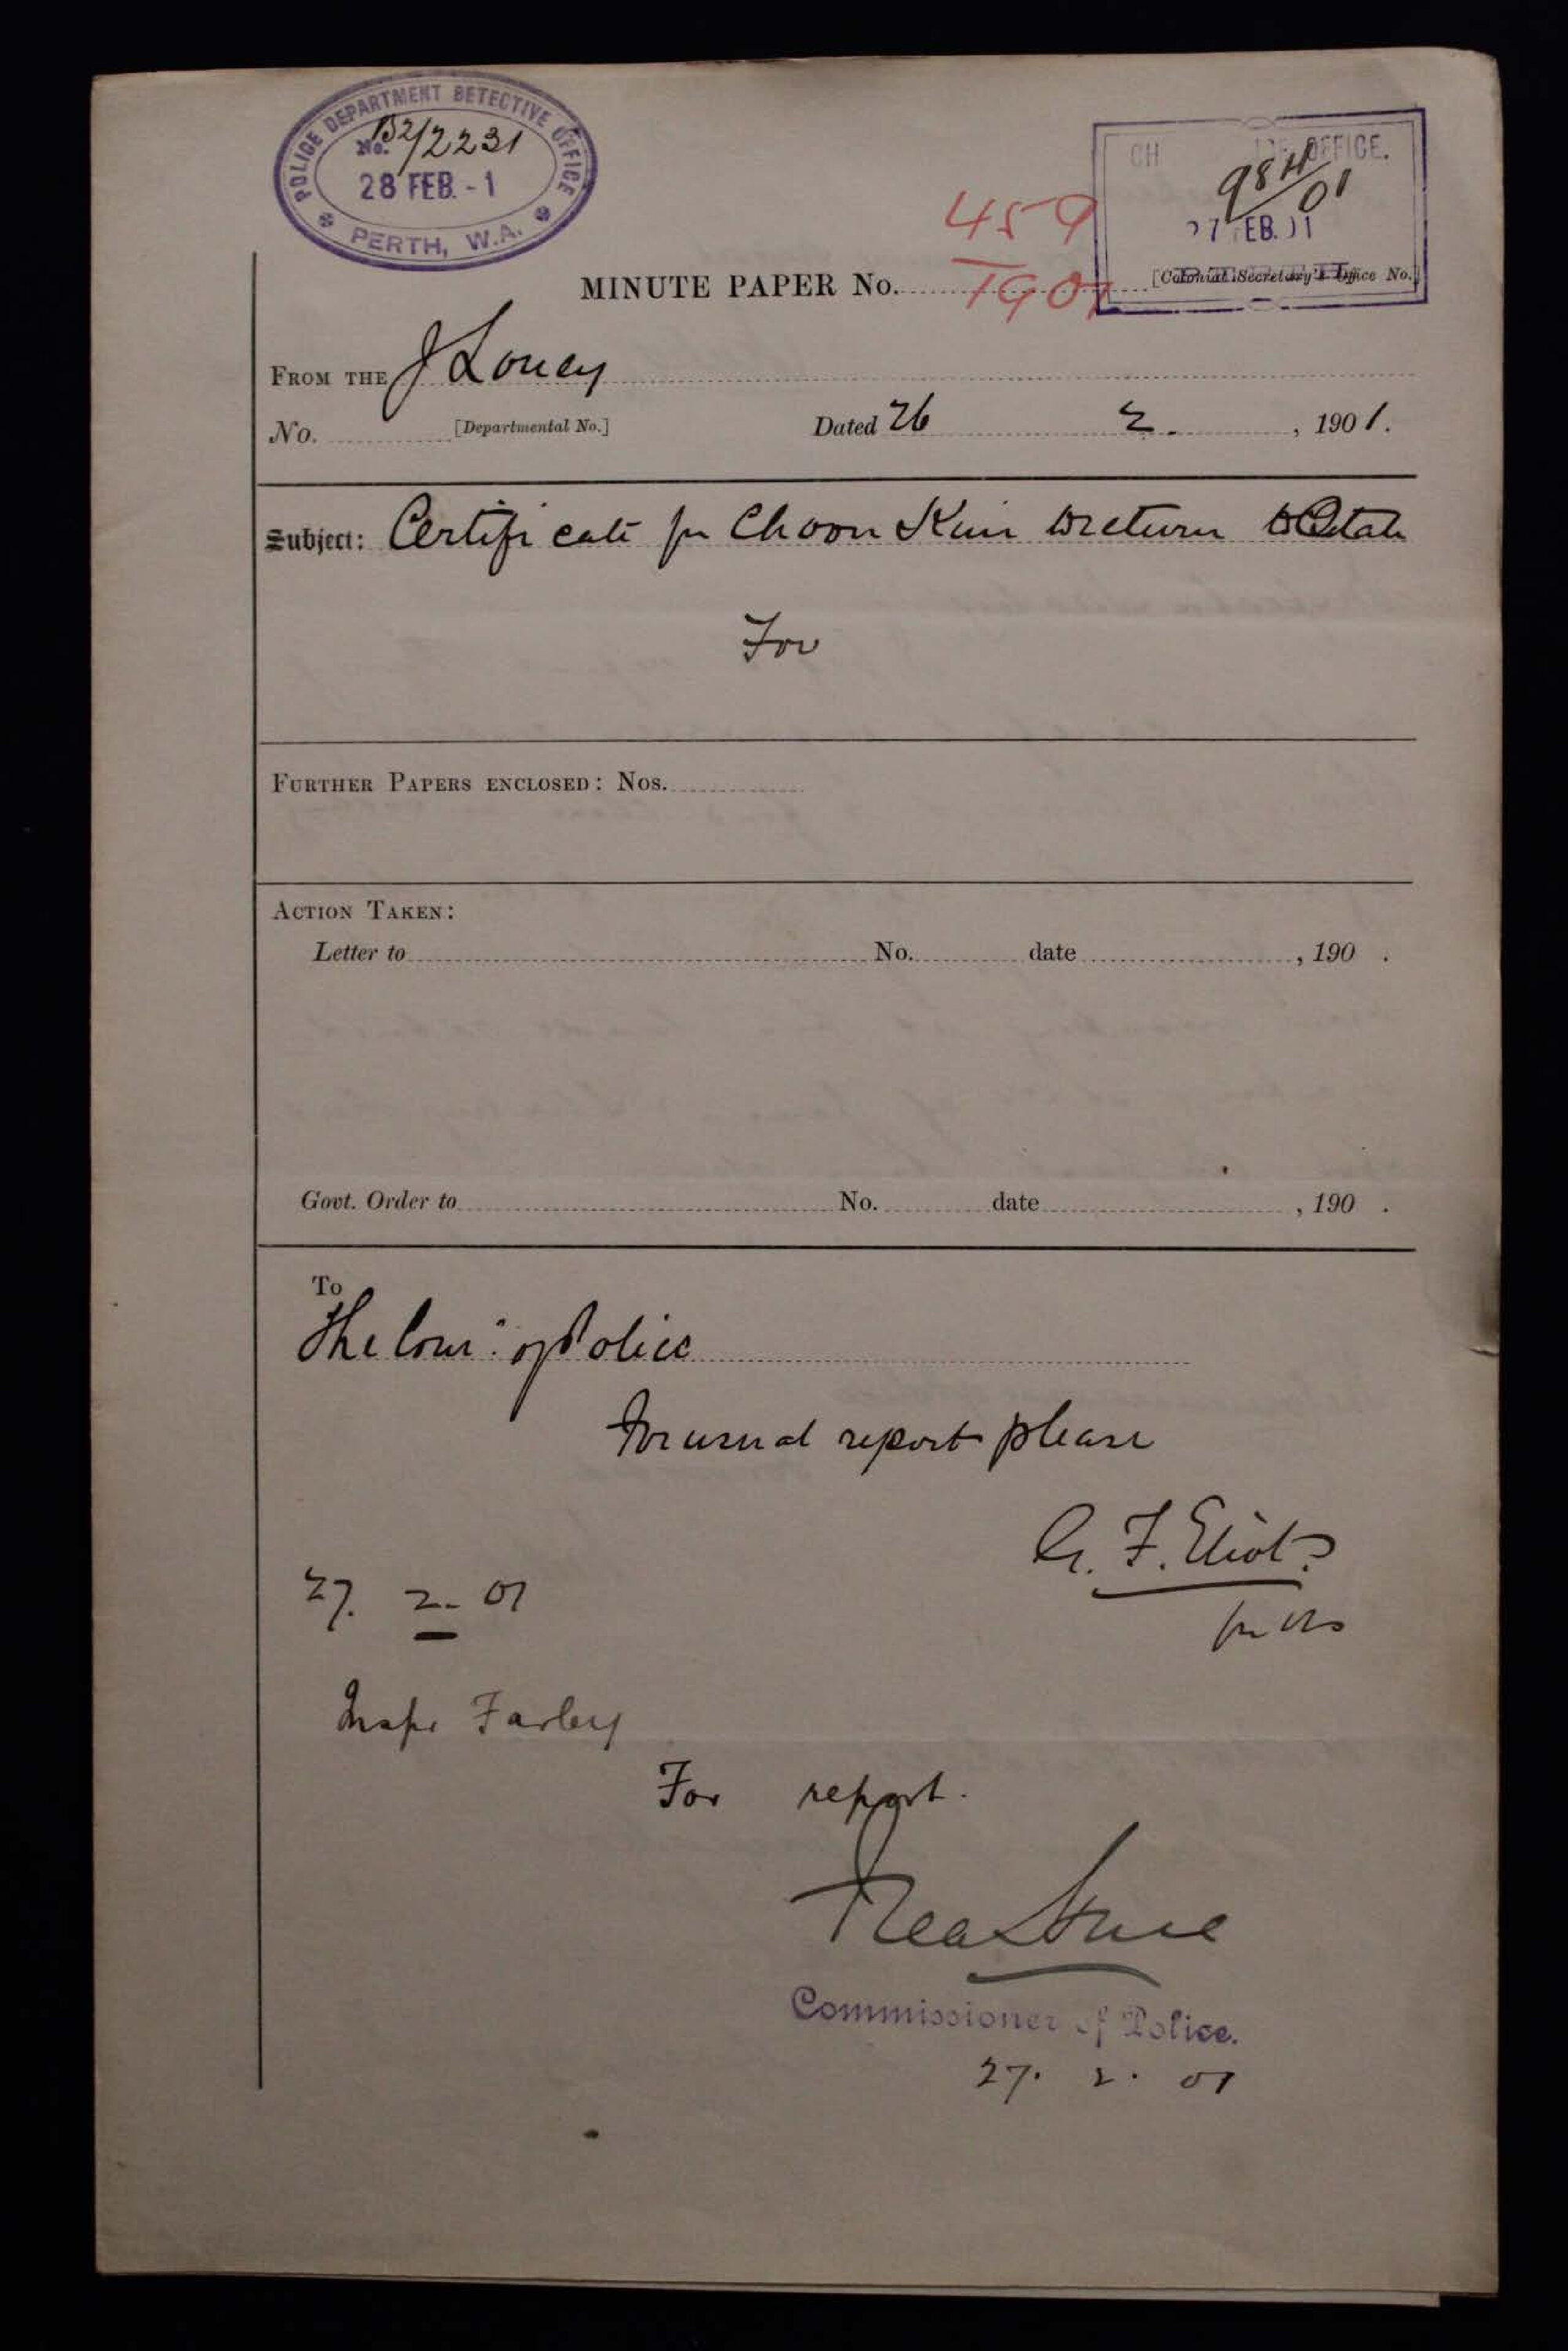 POLICE DEPARTMENT DETECTIVE OFFICE
No. 152/2231
28 FEB. - 1
PERTH, W.A.
OFFICE.
984/01
27 FEB. 01
459
1901
MINUTE PAPER No.
[Colonial Secretary's Office No.]
FROM THE J Loney
No. [Departmental No.] Dated 26 2. , 1901.
Subject: Certificate for Choon Kim to return to State
For
FURTHER PAPERS ENCLOSED: Nos.
ACTION TAKEN:
Letter to No. date , 190 .
Govt. Order to No. date , 190 .
To
The Com: of Police
For usual report please
G. F. Eliot
27. 2. 01
for
Inspr Farley
For report.
Commissioner of Police.
27. 2. 01